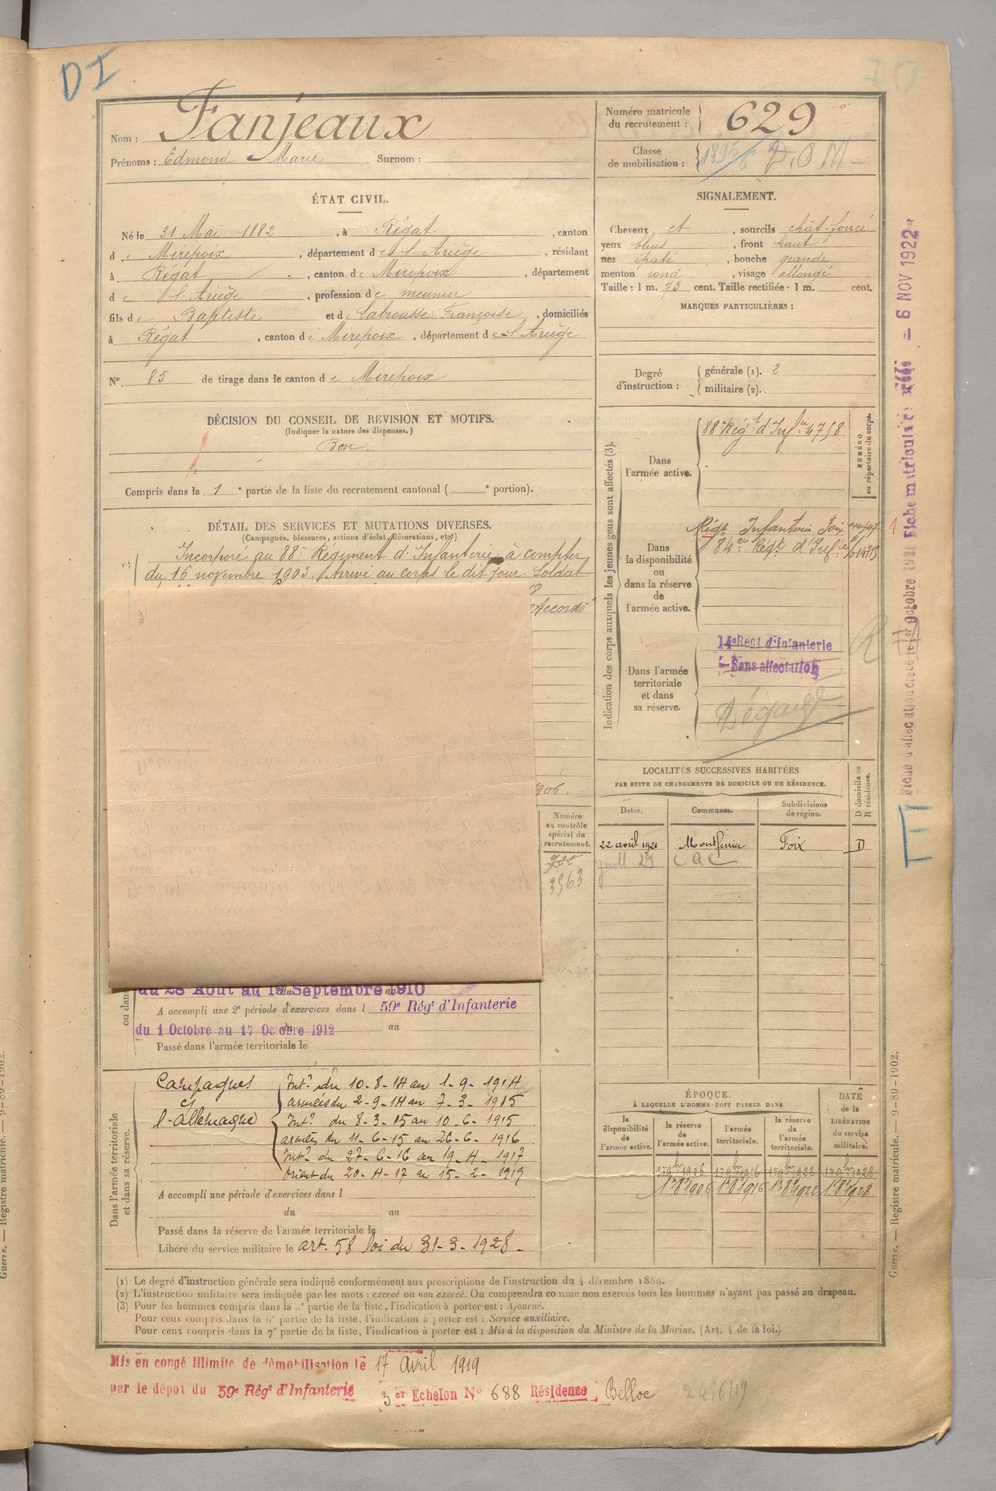 DI
Nom : Fanjeaux
Prénoms : Edmond Marie Surnom :
Numéro matricule du recrutement : 629
Classe de mobilisation :
ÉTAT CIVIL.
Né le 31 Mai 1882, à Régat, canton
d e Mirepoix, département de l'Ariège, résidant
à Régat, canton de Mirepoix, département
d e l'Ariège, profession de meunier
fils de Baptiste et de Labrousse Françoise, domiciliés
à Régat, canton de Mirepoix, département de l'Ariège
N° 85 de tirage dans le canton de Mirepoix
SIGNALEMENT.
Cheveux et, sourcils chât-foncé
yeux bleus, front haut
nez épaté, bouche grande
menton rond, visage allongé
Taille : 1 m. 73 cent. Taille rectifiée : 1 m. cent.
MARQUES PARTICULIÈRES :
Degré d'instruction : générale (1). 2
militaire (2).
DÉCISION DU CONSEIL DE REVISION ET MOTIFS.
(Indiquer la nature des dispenses.)
Bon.
Compris dans la 1e partie de la liste du recrutement cantonal ( e portion).
DÉTAIL DES SERVICES ET MUTATIONS DIVERSES.
(Campagnes, blessures, actions d'éclat, décorations, etc.)
Incorporé au 88e Régiment d'Infanterie à compter
du 16 novembre 1903. Arrivé au corps le dit jour. Soldat
Accordé
906.
Indication des corps auxquels les jeunes gens sont affectés (3).
NUMÉRO au répertoire du corps.
Dans l'armée active.
88e Régt d'Infie 4758
Dans la disponibilité ou dans la réserve de l'armée active.
Régt Infanterie Foix
Régt d'Infie
Dans l'armée territoriale et dans sa réserve.
14e Regt d'Infanterie
Sans affectation
Dégagé
LOCALITÉS SUCCESSIVES HABITÉES
PAR SUITE DE CHANGEMENTS DE DOMICILE OU DE RÉSIDENCE.
Dates. Communes. Subdivisions de région. D domicile ou R résidence.
22 avril 1921 Montferrier Foix D
Numéro au contrôle spécial du recrutement.
3563
du 28 Août au 19 Septembre 1910
A accompli une 2e période d'exercices dans l 59e Régt d'Infanterie
du 1 Octobre au 17 Octobre 1912 au
Passé dans l'armée territoriale le
Dans l'armée territoriale et dans sa réserve.
Campagnes Intr du 10-8-14 au 1-9-1914
armées du 2-9-14 au 7-3-1915
l'Allemagne Intr du 8-3-15 au 10-6-1915
armées du 11-6-15 au 26-6-1916
Intr du 27-6-16 au 19-4-1917
Orient du 20-4-17 au 15-2-1919
A accompli une période d'exercices dans l
du au
Passé dans la réserve de l'armée territoriale le
Libéré du service militaire le art. 58 loi du 31-3-1928.
ÉPOQUE
À LAQUELLE L'HOMME DOIT PASSER DANS
la disponibilité de l'armée active. la réserve de l'armée active. l'armée territoriale. la réserve de l'armée territoriale.
DATE de la LIBÉRATION du service militaire.
(1) Le degré d'instruction générale sera indiqué conformément aux prescriptions de l'instruction du 4 décembre 1889.
(2) L'instruction militaire sera indiquée par les mots : exercé ou non exercé. On comprendra comme non exercés tous les hommes n'ayant pas passé au drapeau.
(3) Pour les hommes compris dans la 5e partie de la liste, l'indication à porter est : Ajourné.
Pour ceux compris dans la 6e partie de la liste, l'indication à porter est : Service auxiliaire.
Pour ceux compris dans la 7e partie de la liste, l'indication à porter est : Mis à la disposition du Ministre de la Marine. (Art. 4 de la loi.)
Mis en congé illimité de démobilisation le 17 Avril 1919
par le dépot du 59e Rég' d'Infanterie 3er Echelon N° 688 Résidence Belloc
6 NOV 1922
Guerre. — Registre matricule. — 9-89-1902.